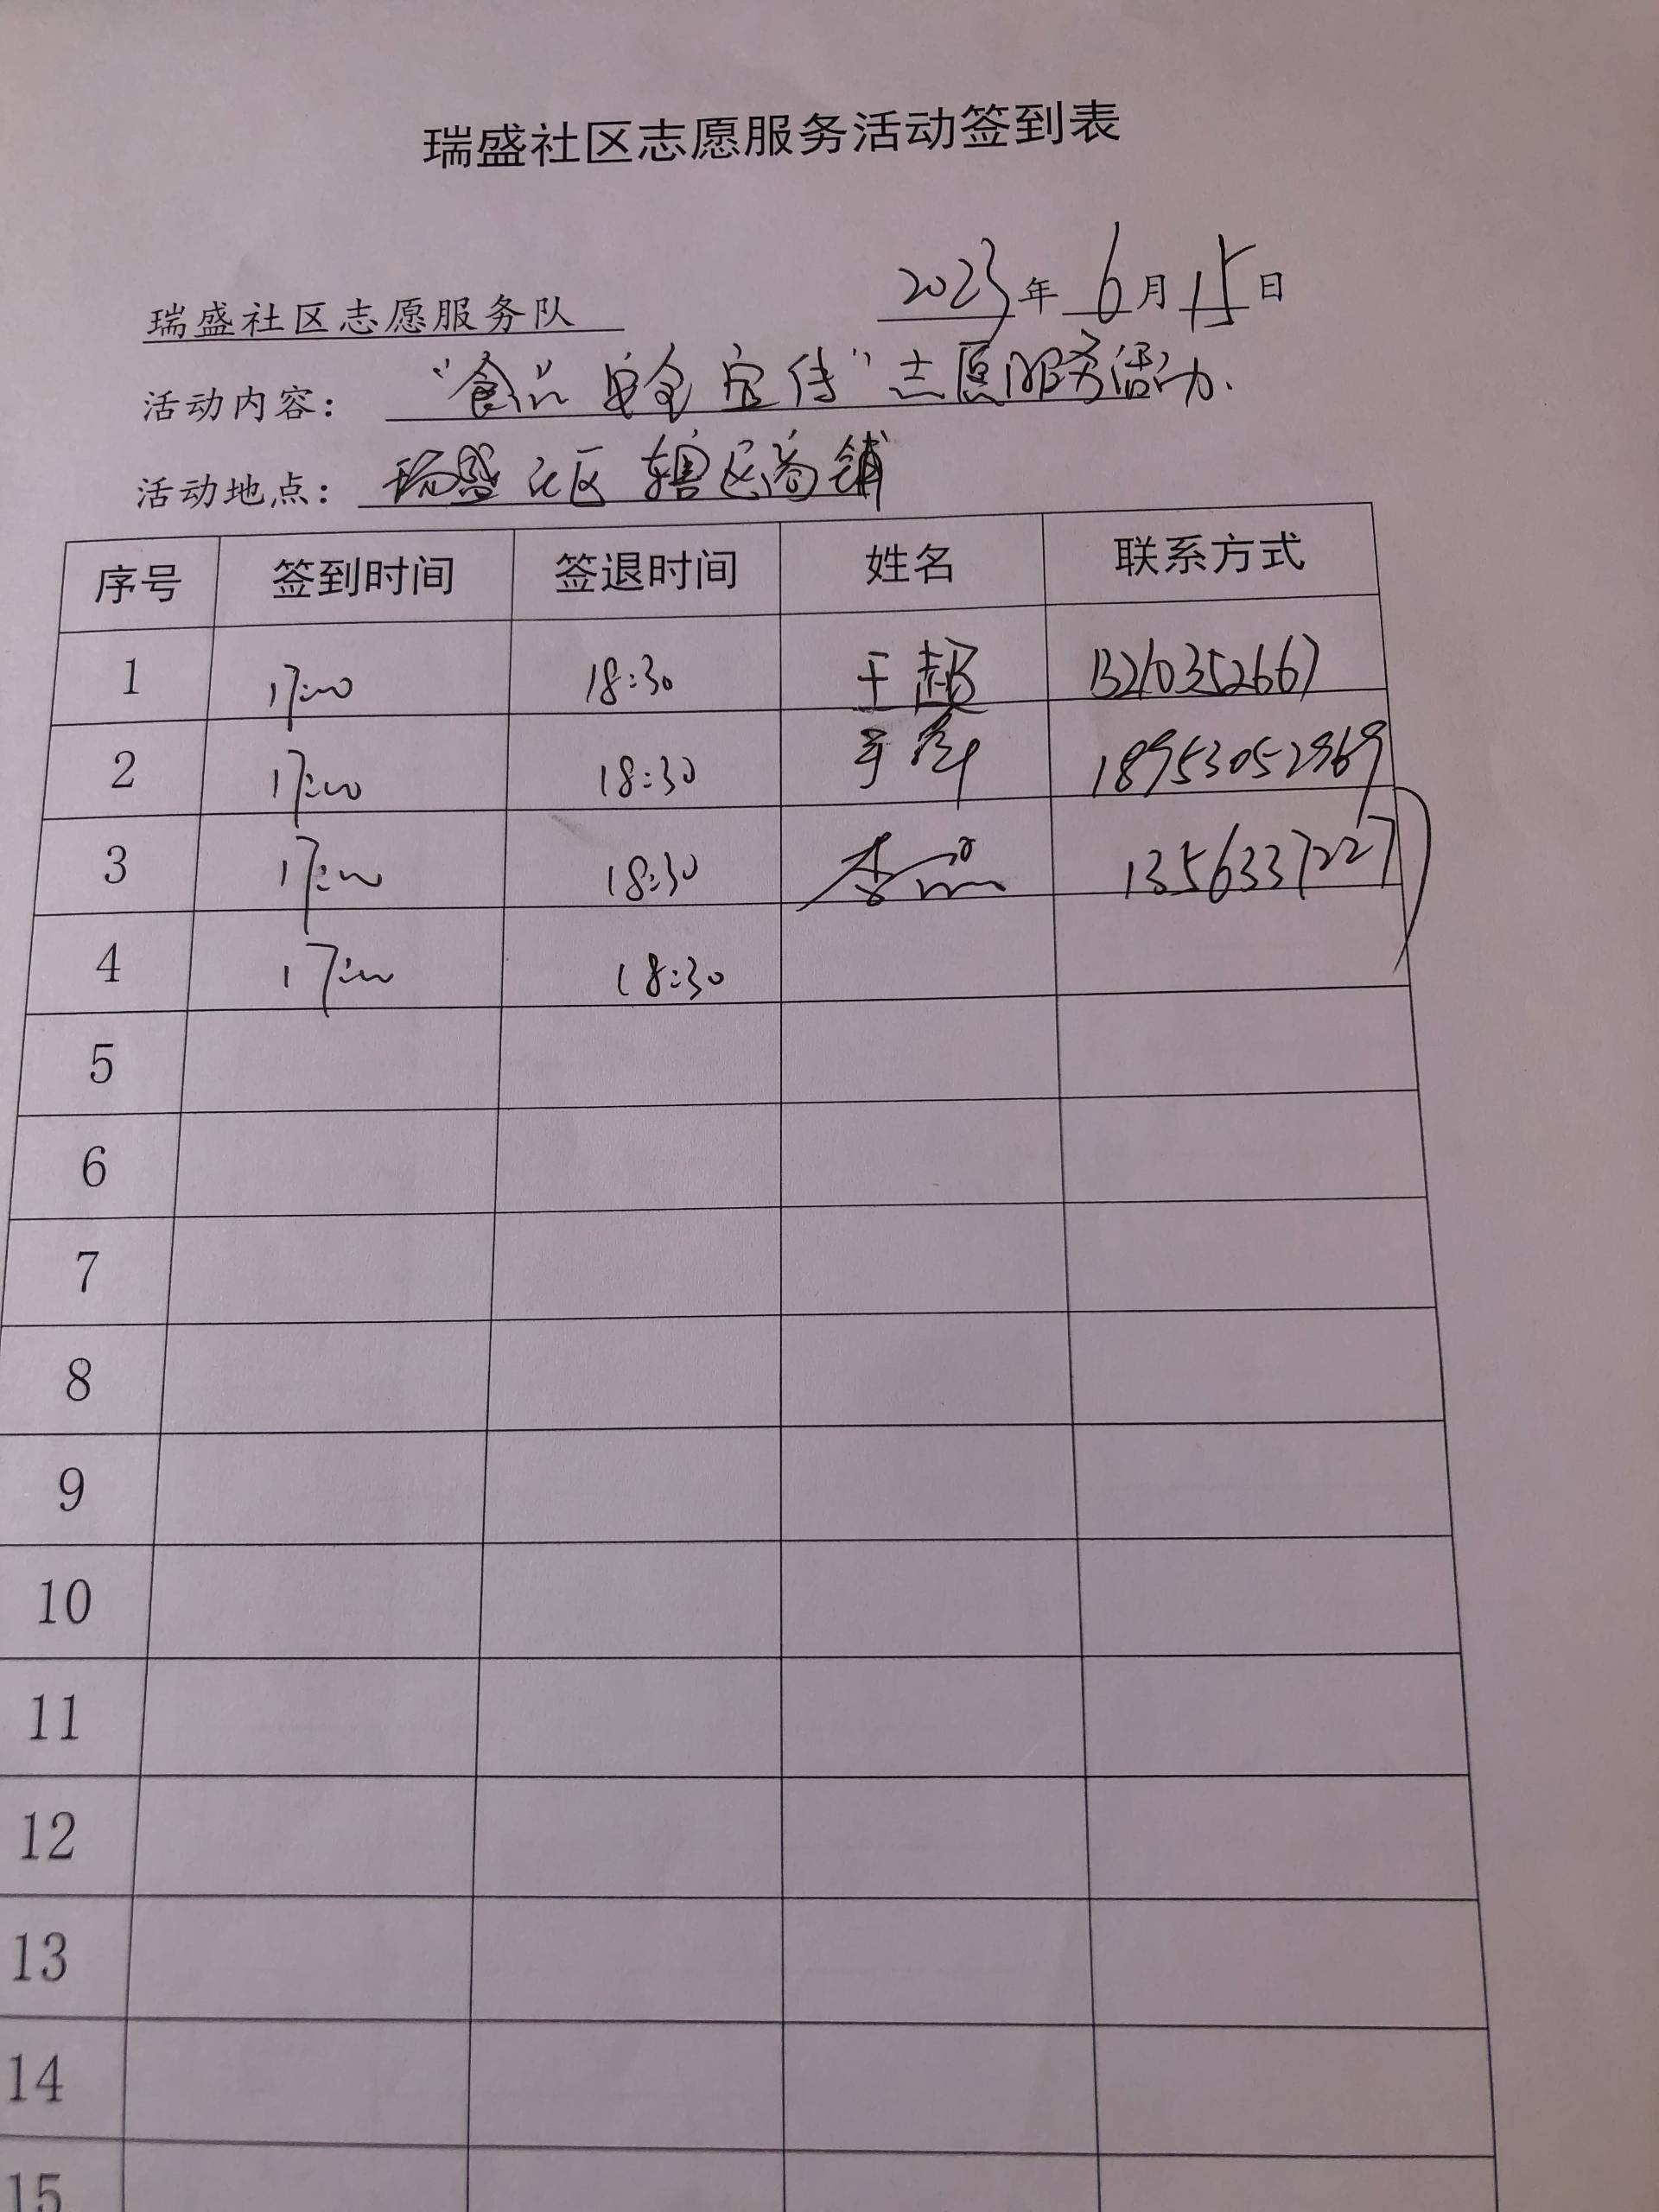 瑞盛社区志愿服务活动签到表
瑞盛社区志愿服务队 2023年 6月15日
活动内容： “食品安全宣传”志愿服务活动.
活动地点： 瑞盛社区辖区商铺
序号 签到时间 签退时间 姓名 联系方式
1 17:00 18:30 王超 13210352667
2 17:00 18:30 18953052969
3 17:00 18:30 李 13563371227
4 17:00 18:30
5
6
7
8
9
10
11
12
13
14
15